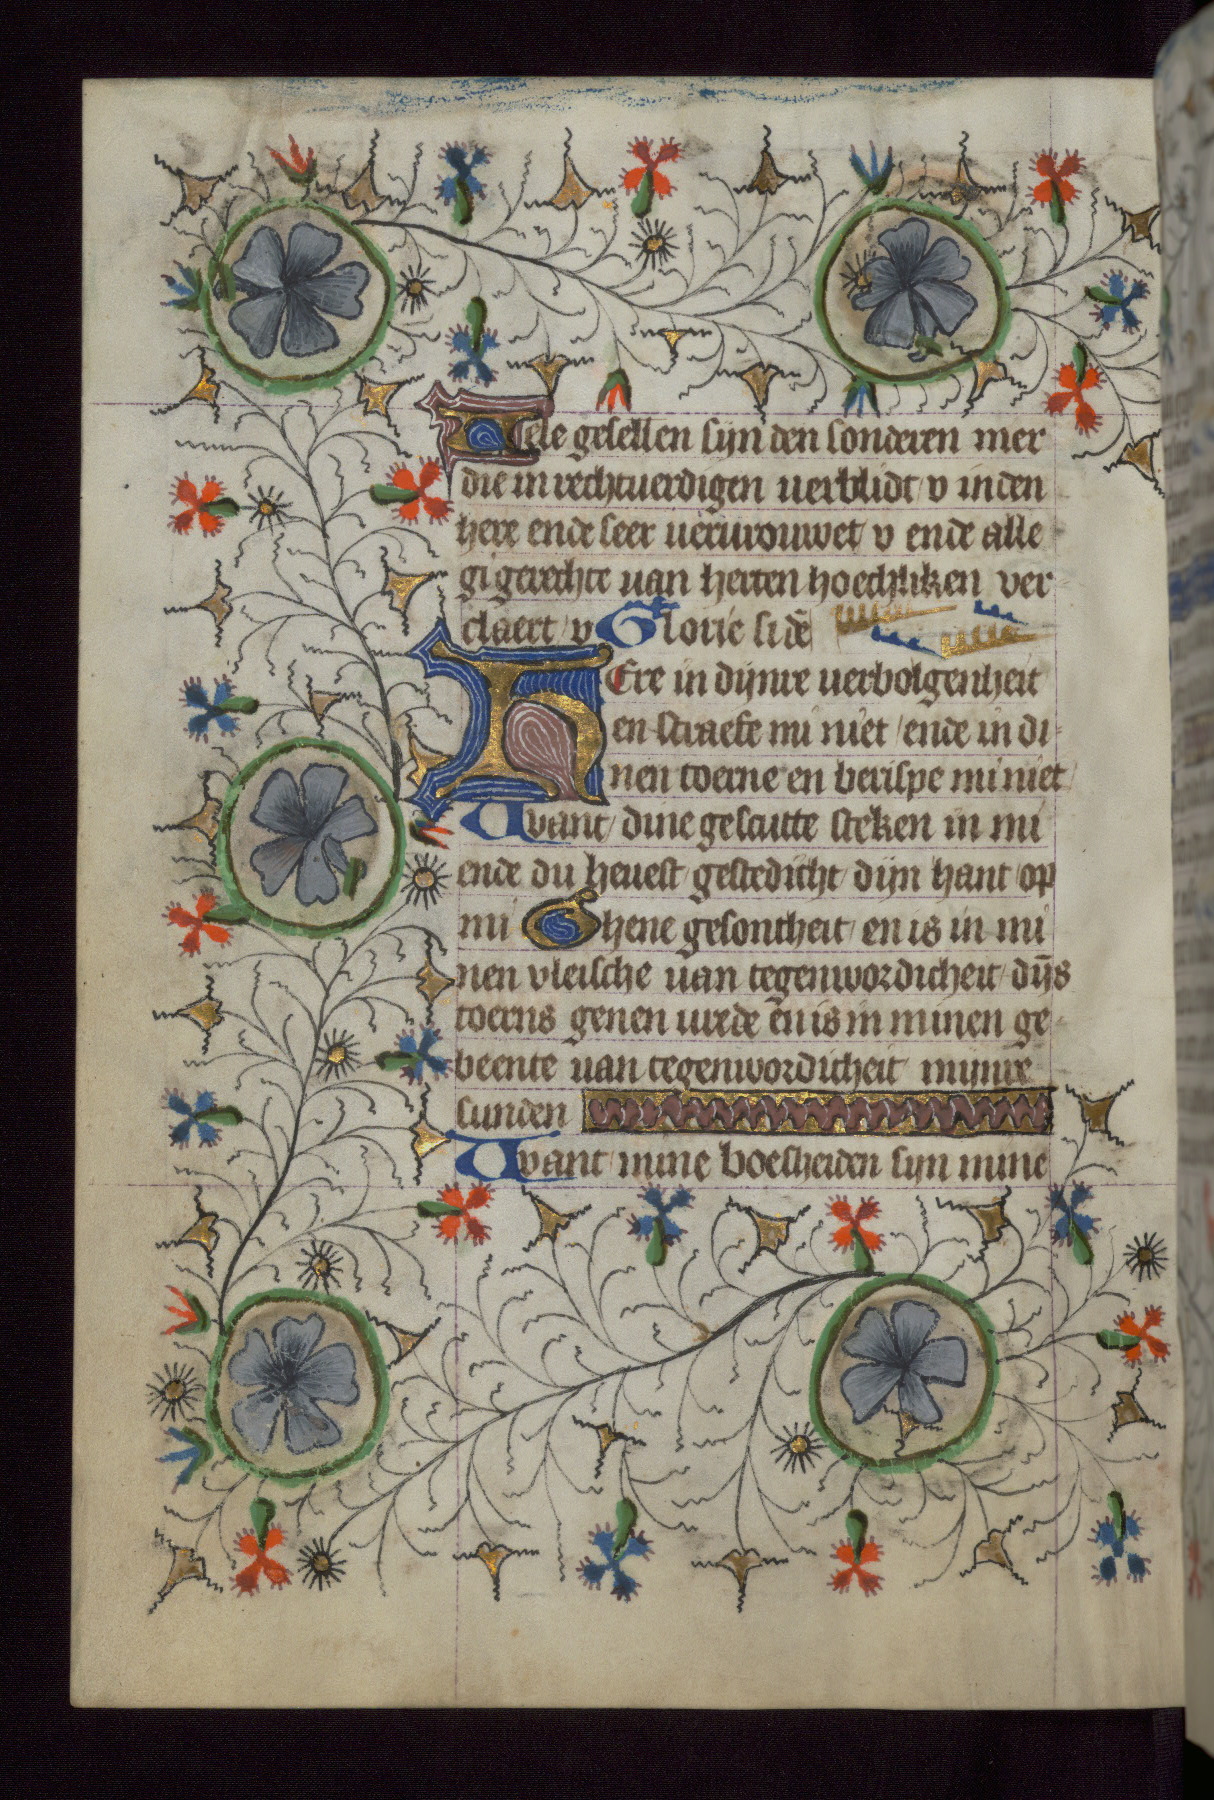 Uele gesellen sijn den sonderen mer
die in rechtuerdigen uerblidt v in den
here ende seer uerurouwet v ende alle
gi gerechte uan herten hoechliken ver
claert v Glorie si dē
HEre in dijnre uerbolgenheit
en straefe mi niet / ende in di-
nen toerne en berispe mi niet /
Want / dine gescutte steken in mi
ende du heuest gestedicht / dijn hant op
mi Ghene gesontheit / en is in mi
nen vleische uan tegenwordicheit / dijs
toerns genen urede en is in minen ge-
beente uan tegenwordicheit mijnre
sunden
Want / mine boesheiden sijn mine